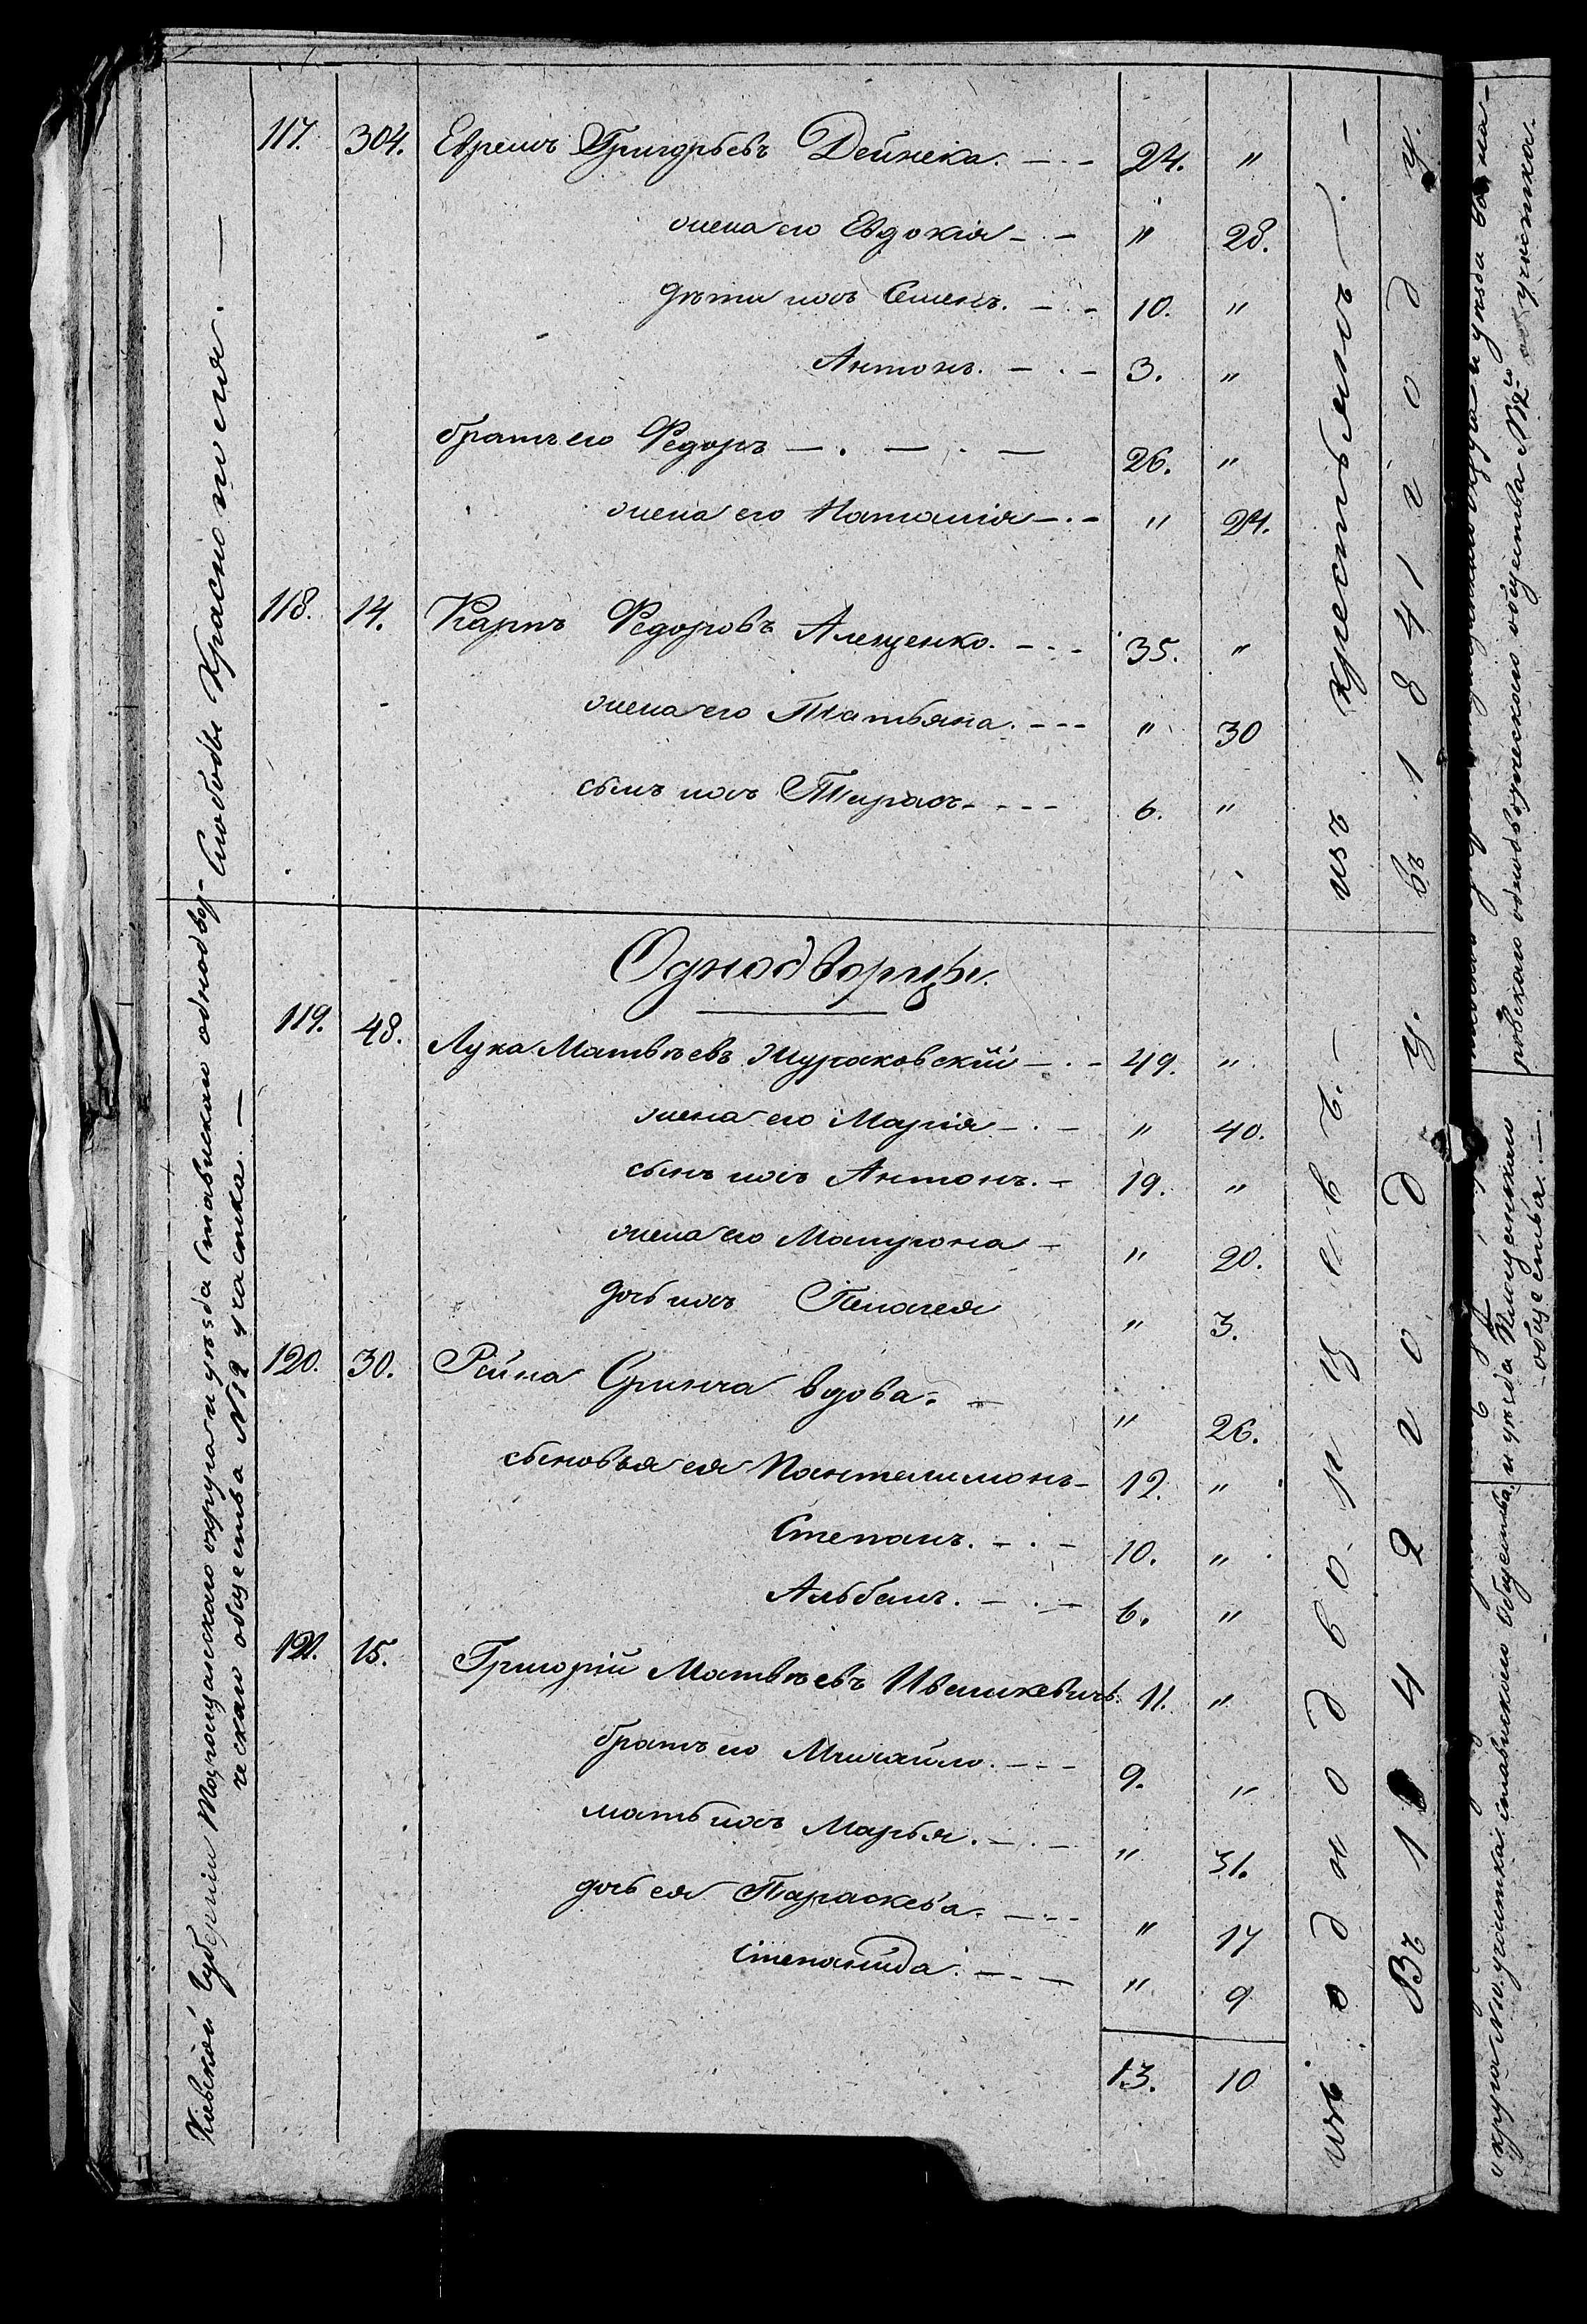 117. 304. Ефремъ Григорьевъ Дейнека. 24. "
жена его Евдокія " 28.
дѣти ихъ Семенъ. 10. "
Антонъ. 3. "
братъ его Федоръ 26. "
жена его Наталія " 24.
118. 14. Карпъ Федоровъ Алещенко. 35. "
жена его Татьяна. " 30
сынъ ихъ Тарасъ 6. "
Слободы Краснополя.
изъ крестьянъ
въ 1841 году.
Однодворцы.
119. 48. Лука Матвѣевъ Жураковскій 49. "
жена его Марія " 40.
сынъ ихъ Антонъ. 19. "
жена его Матрона " 20.
дочь ихъ Пелагея " 3.
120. 30. вдова. " 26.
сыновья ея Пантелимонъ 12. "
Степанъ. 10. "
Альбанъ. 6. "
121. 15. Григорій Матвѣевъ Ивашкевичъ. 11. "
братъ его Михайло. 9. "
мать ихъ Марья. " 31.
дочь ея Параскева. " 17
Степанида. " 9
13. 10
Кіевской Губерніи Таращанскаго округа и уѣзда ставискаго однодвор-
ческаго общества №12 участка.
изъ однодворцевъ.
Въ 1842 году.
округа №10 участка ставискаго Общества
и уѣзда
общества.
ровскаго однодворческаго общества №12го участка.